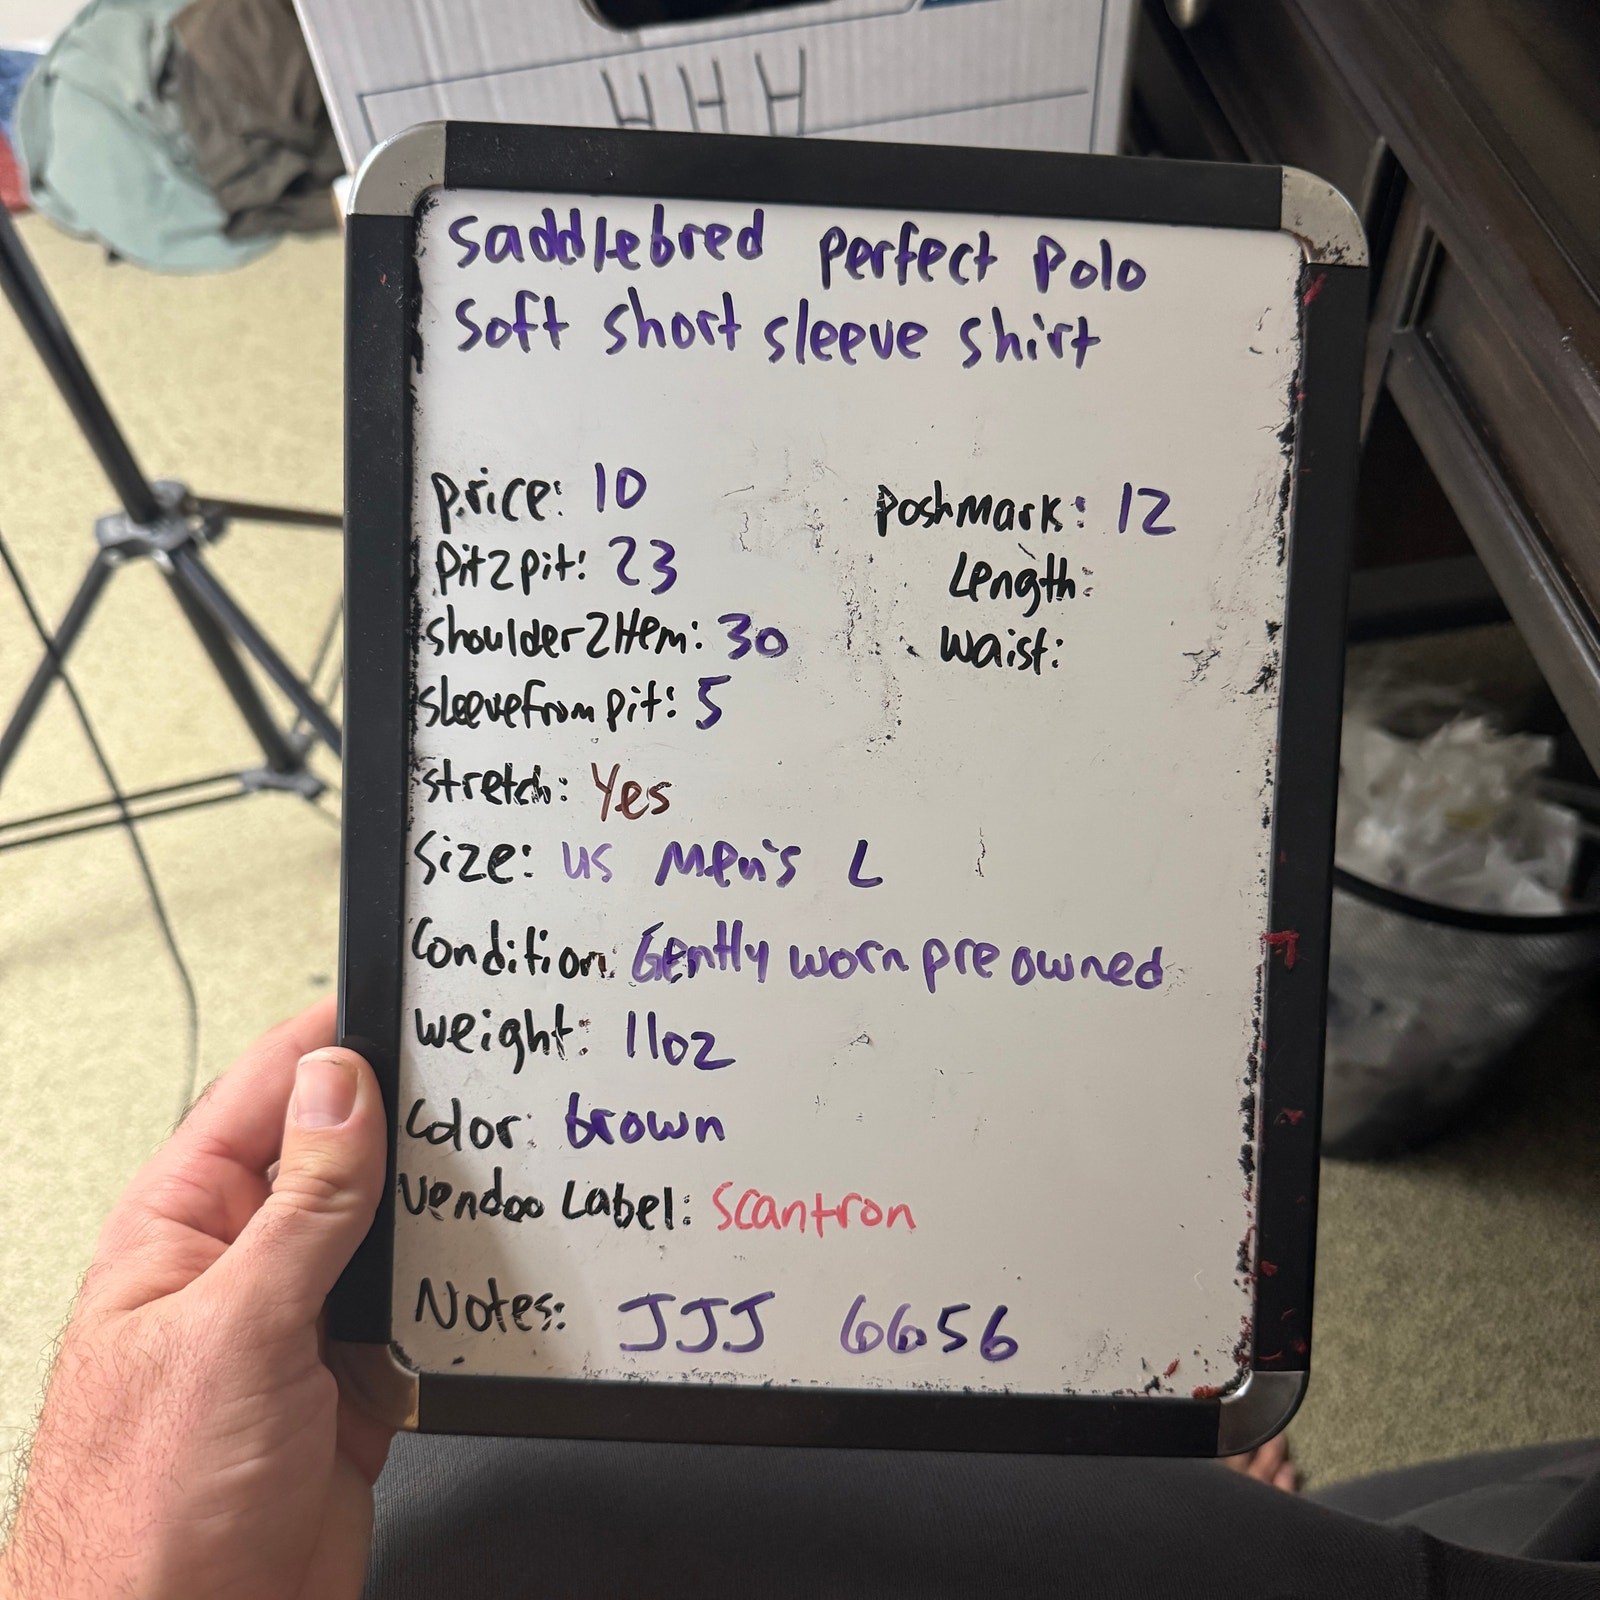 HHH
saddlebred perfect Polo
soft short sleeve shirt
price: 10
Poshmark: 12
Pit2pit: 23
Length:
shoulder2Hem: 30
Waist:
sleevefrompit: 5
stretch: Yes
Size: US Men's L
Condition: Gently worn pre owned
Weight: 11oz
Color: brown
Vendoo Label: scantron
Notes: JJJ 6656